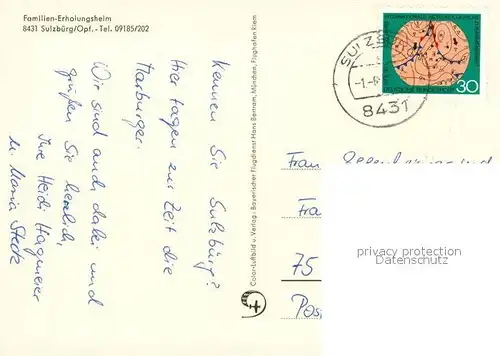 Familien-Erholungsheim
8431 Sulzbürg/Opf. - Tel. 09185/202
Kennen Sie Sulzbürg?
Hier tagen zur Zeit die
Harburger.
Wir sind auch dabei und
grüßen Sie herzlich,
Ihre Heidi Hagmeier
u. Maria
Color-Luftbild u. Verlag: Bayerischer Flugdienst Hans Bertram, München, Flughafen Riem
SULZB
8431
DEUTSCHE BUNDESPOST
30
Frau
Fra
75
Post
privacy protection
Datenschutz